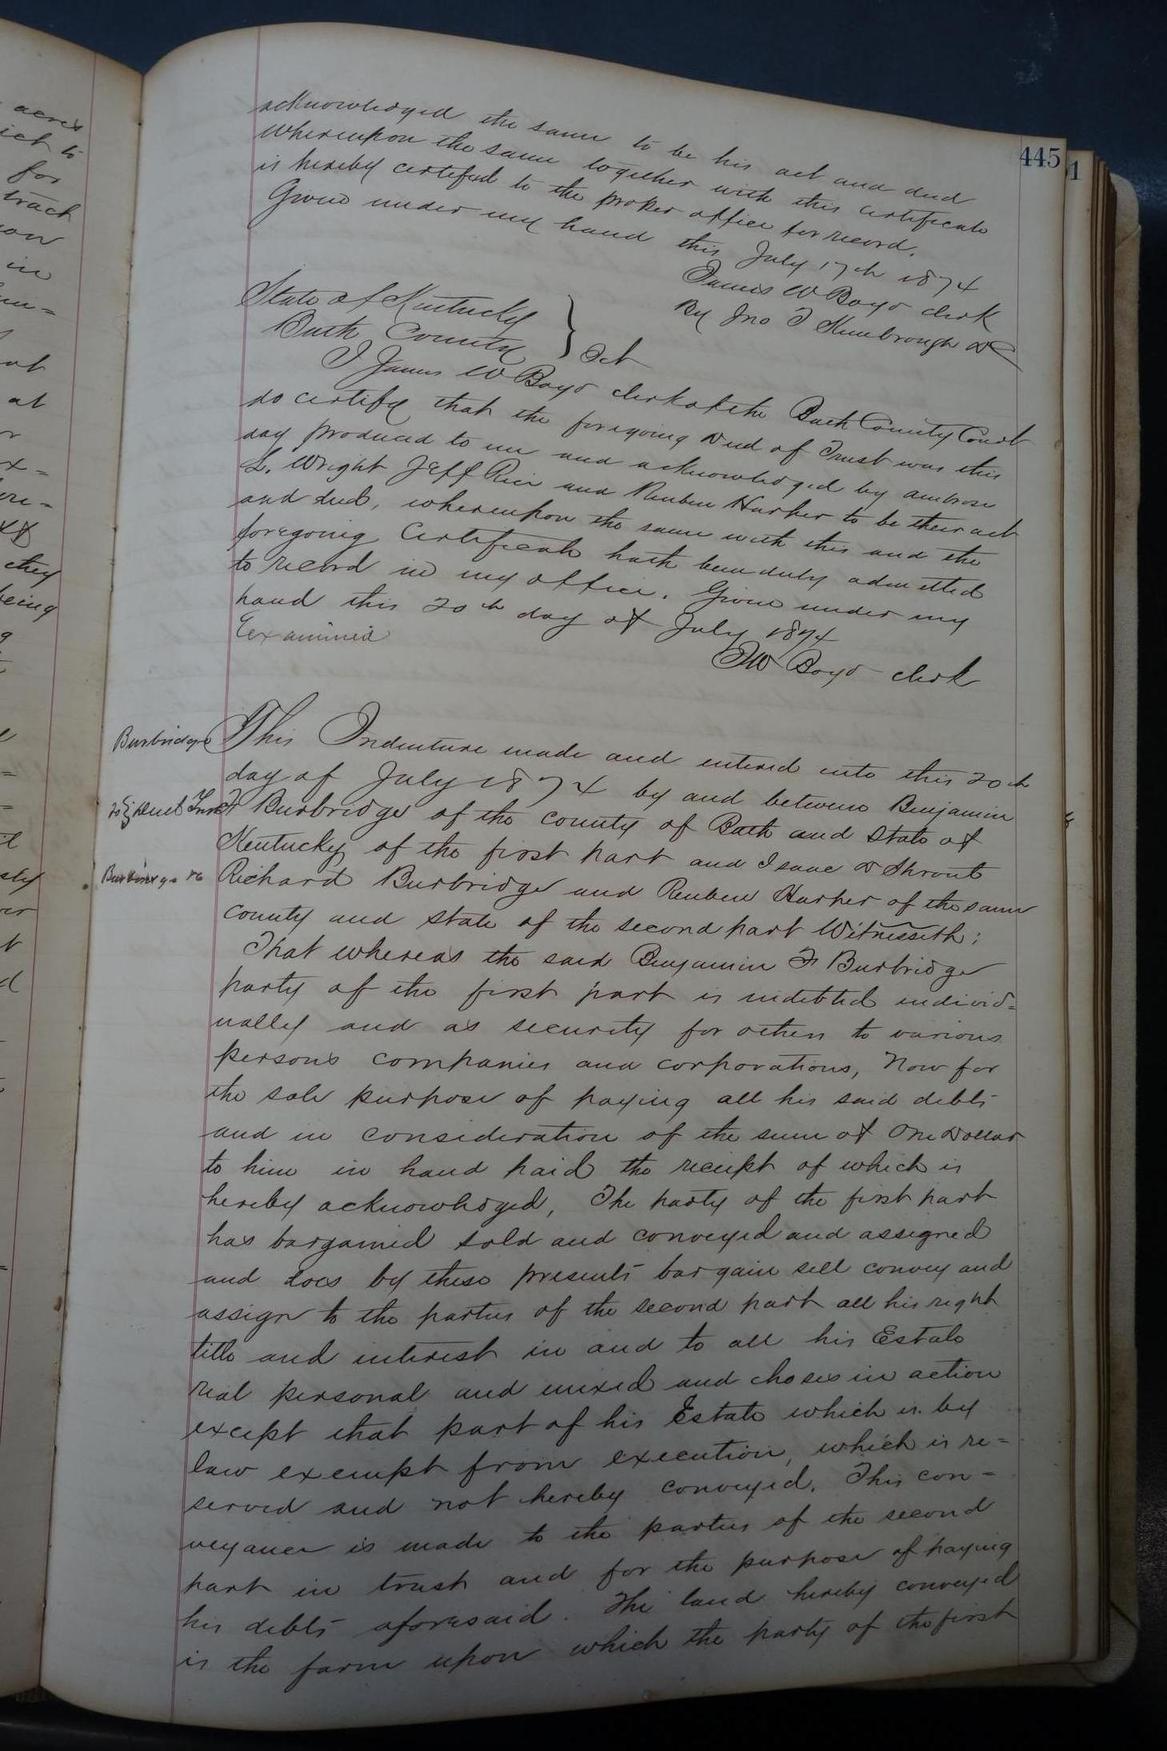 445
acknowledged the same to be his act and deed
whereupon the same together with this certificate
is hereby certified to the proper office for record.
Given under my hand this July 17th 1874
James W Boyd clerk
By Jno T Kimbrough DC
State of Kentucky
Bath County } Sct
I James W Boyd clerk of the Bath County Court
do certify that the foregoing Deed of Trust was this
day produced to me and acknowledged by Ambrose
L. Wright Jeff Rice and Reuben Harper to be their act
and deed, whereupon the same with this and the
foregoing Certificate hath been duly admitted
to record in my office. Given under my
hand this 20th day of July 1874
Examined
JW Boyd clerk
Burbridge
to } Deed Trust
Burbridge &c
This Indenture made and entered into this 20th
day of July 1874 by and between Benjamin
F Burbridge of the county of Bath and State of
Kentucky of the first part and Isaac D Shrout
Richard Burbridge and Reuben Harper of the same
county and state of the second part Witnesseth;
That whereas the said Benjamin F Burbridge
party of the first part is indebted individ=
ually and as security for others to various
persons companies and corporations, Now for
the sole purpose of paying all his said debts
and in consideration of the sum of One Dollar
to him in hand paid the receipt of which is
hereby acknowledged, The party of the first part
has bargained sold and conveyed and assigned
and does by these presents bargain sell convey and
assign to the parties of the second part all his right
title and interest in and to all his Estate
real personal and mixed and choses in action
except that part of his Estate which is by
law exempt from execution, which is re=
served and not hereby conveyed. This con=
veyance is made to the parties of the second
part in trust and for the purpose of paying
his debts aforesaid. The land hereby conveyed
is the farm upon which the party of the first